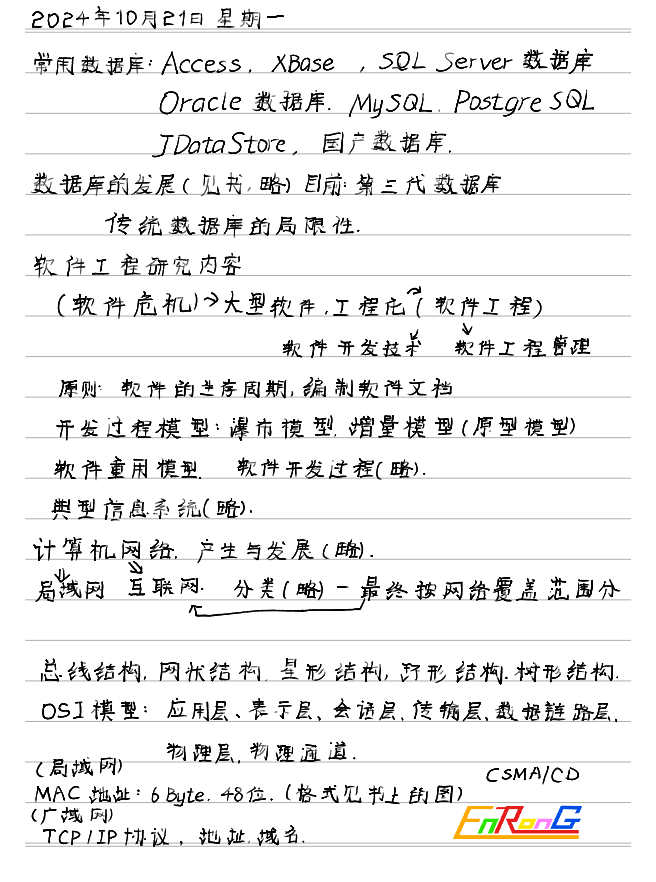 2024年10月21日 星期一
常用数据库: Access, XBase , SQL Server 数据库
Oracle 数据库. MySQL. Postgre SQL
JDataStore, 国产数据库.
数据库的发展(见书,略) 目前:第三代数据库
传统数据库的局限性.
软件工程研究内容
(软件危机)→大型软件,工程化(软件工程)
软件开发技术 软件工程管理
原则: 软件的生存周期,编制软件文档
开发过程模型: 瀑布模型. 增量模型(原型模型)
软件重用模型. 软件开发过程(略).
典型信息系统(略).
计算机网络. 产生与发展(略).
局域网 互联网. 分类(略) - 最终按网络覆盖范围分
总线结构, 网状结构. 星形结构, 环形结构. 树形结构.
OSI模型: 应用层、表示层、会话层,传输层,数据链路层,
物理层,物理通道.
(局域网)
CSMA/CD
MAC 地址: 6 Byte. 48位. (格式见书上的图)
(广域网)
TCP/IP协议, 地址.域名.
EnRonG